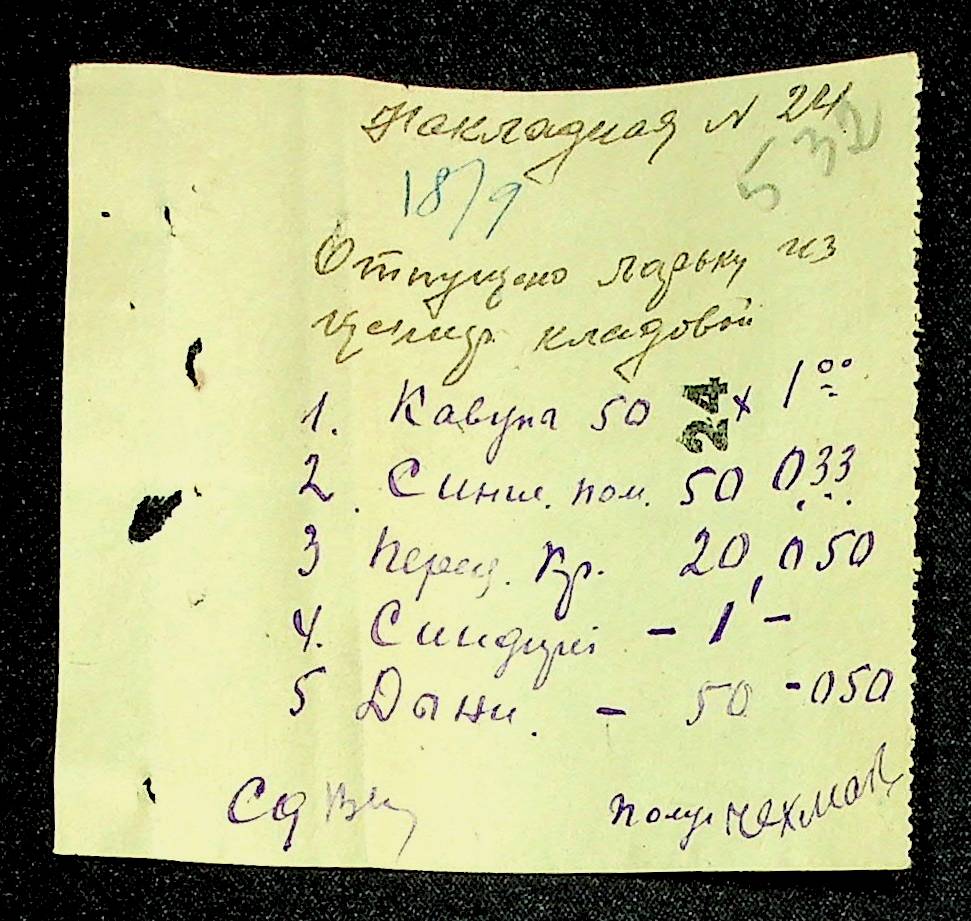 Накладная N 24
532
18/9
Отпущено ларьку из
центр. кладовой
1. Кавуны 50 24 x 1 00
2. Синие. пом. 50 0 33
3 перец. кр. 20, 0 50
4. - 1 -
5 Дыни. - 50 - 0 50
Сд
Полу. Чехмат